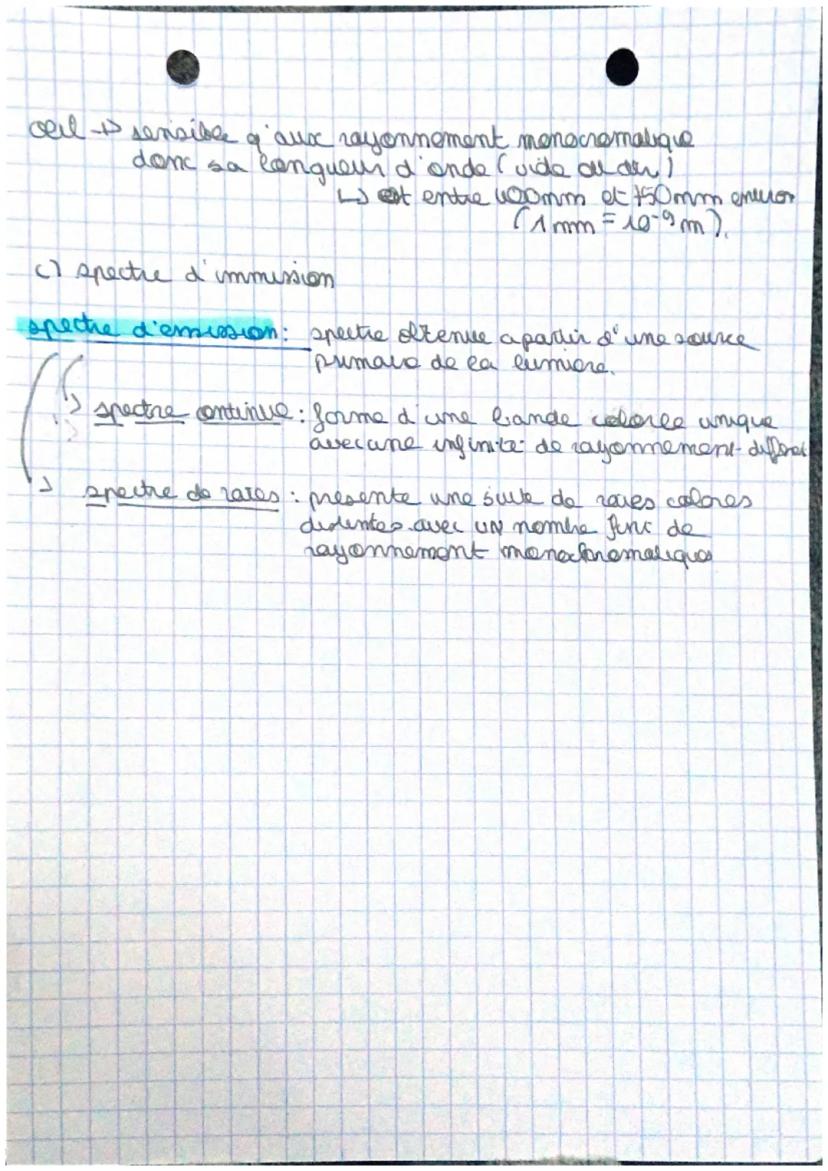 oeil → sensible q'aux rayonnement monocromatique
donc sa longueur d'onde (vide ou air)
↳ est entre 400nm et 750nm environ
(1nm = 10⁻⁹m).
c) spectre d'immission
spectre d'emission : spectre obtenue a partir d'une source
primaire de la lumiere.
spectre continue : forme d'une bande coloree unique
avec une infinité de rayonnement different
spectre de raies : presente une suite de raies colores
distentes avec un nombre fini de
rayonnement monochromatique